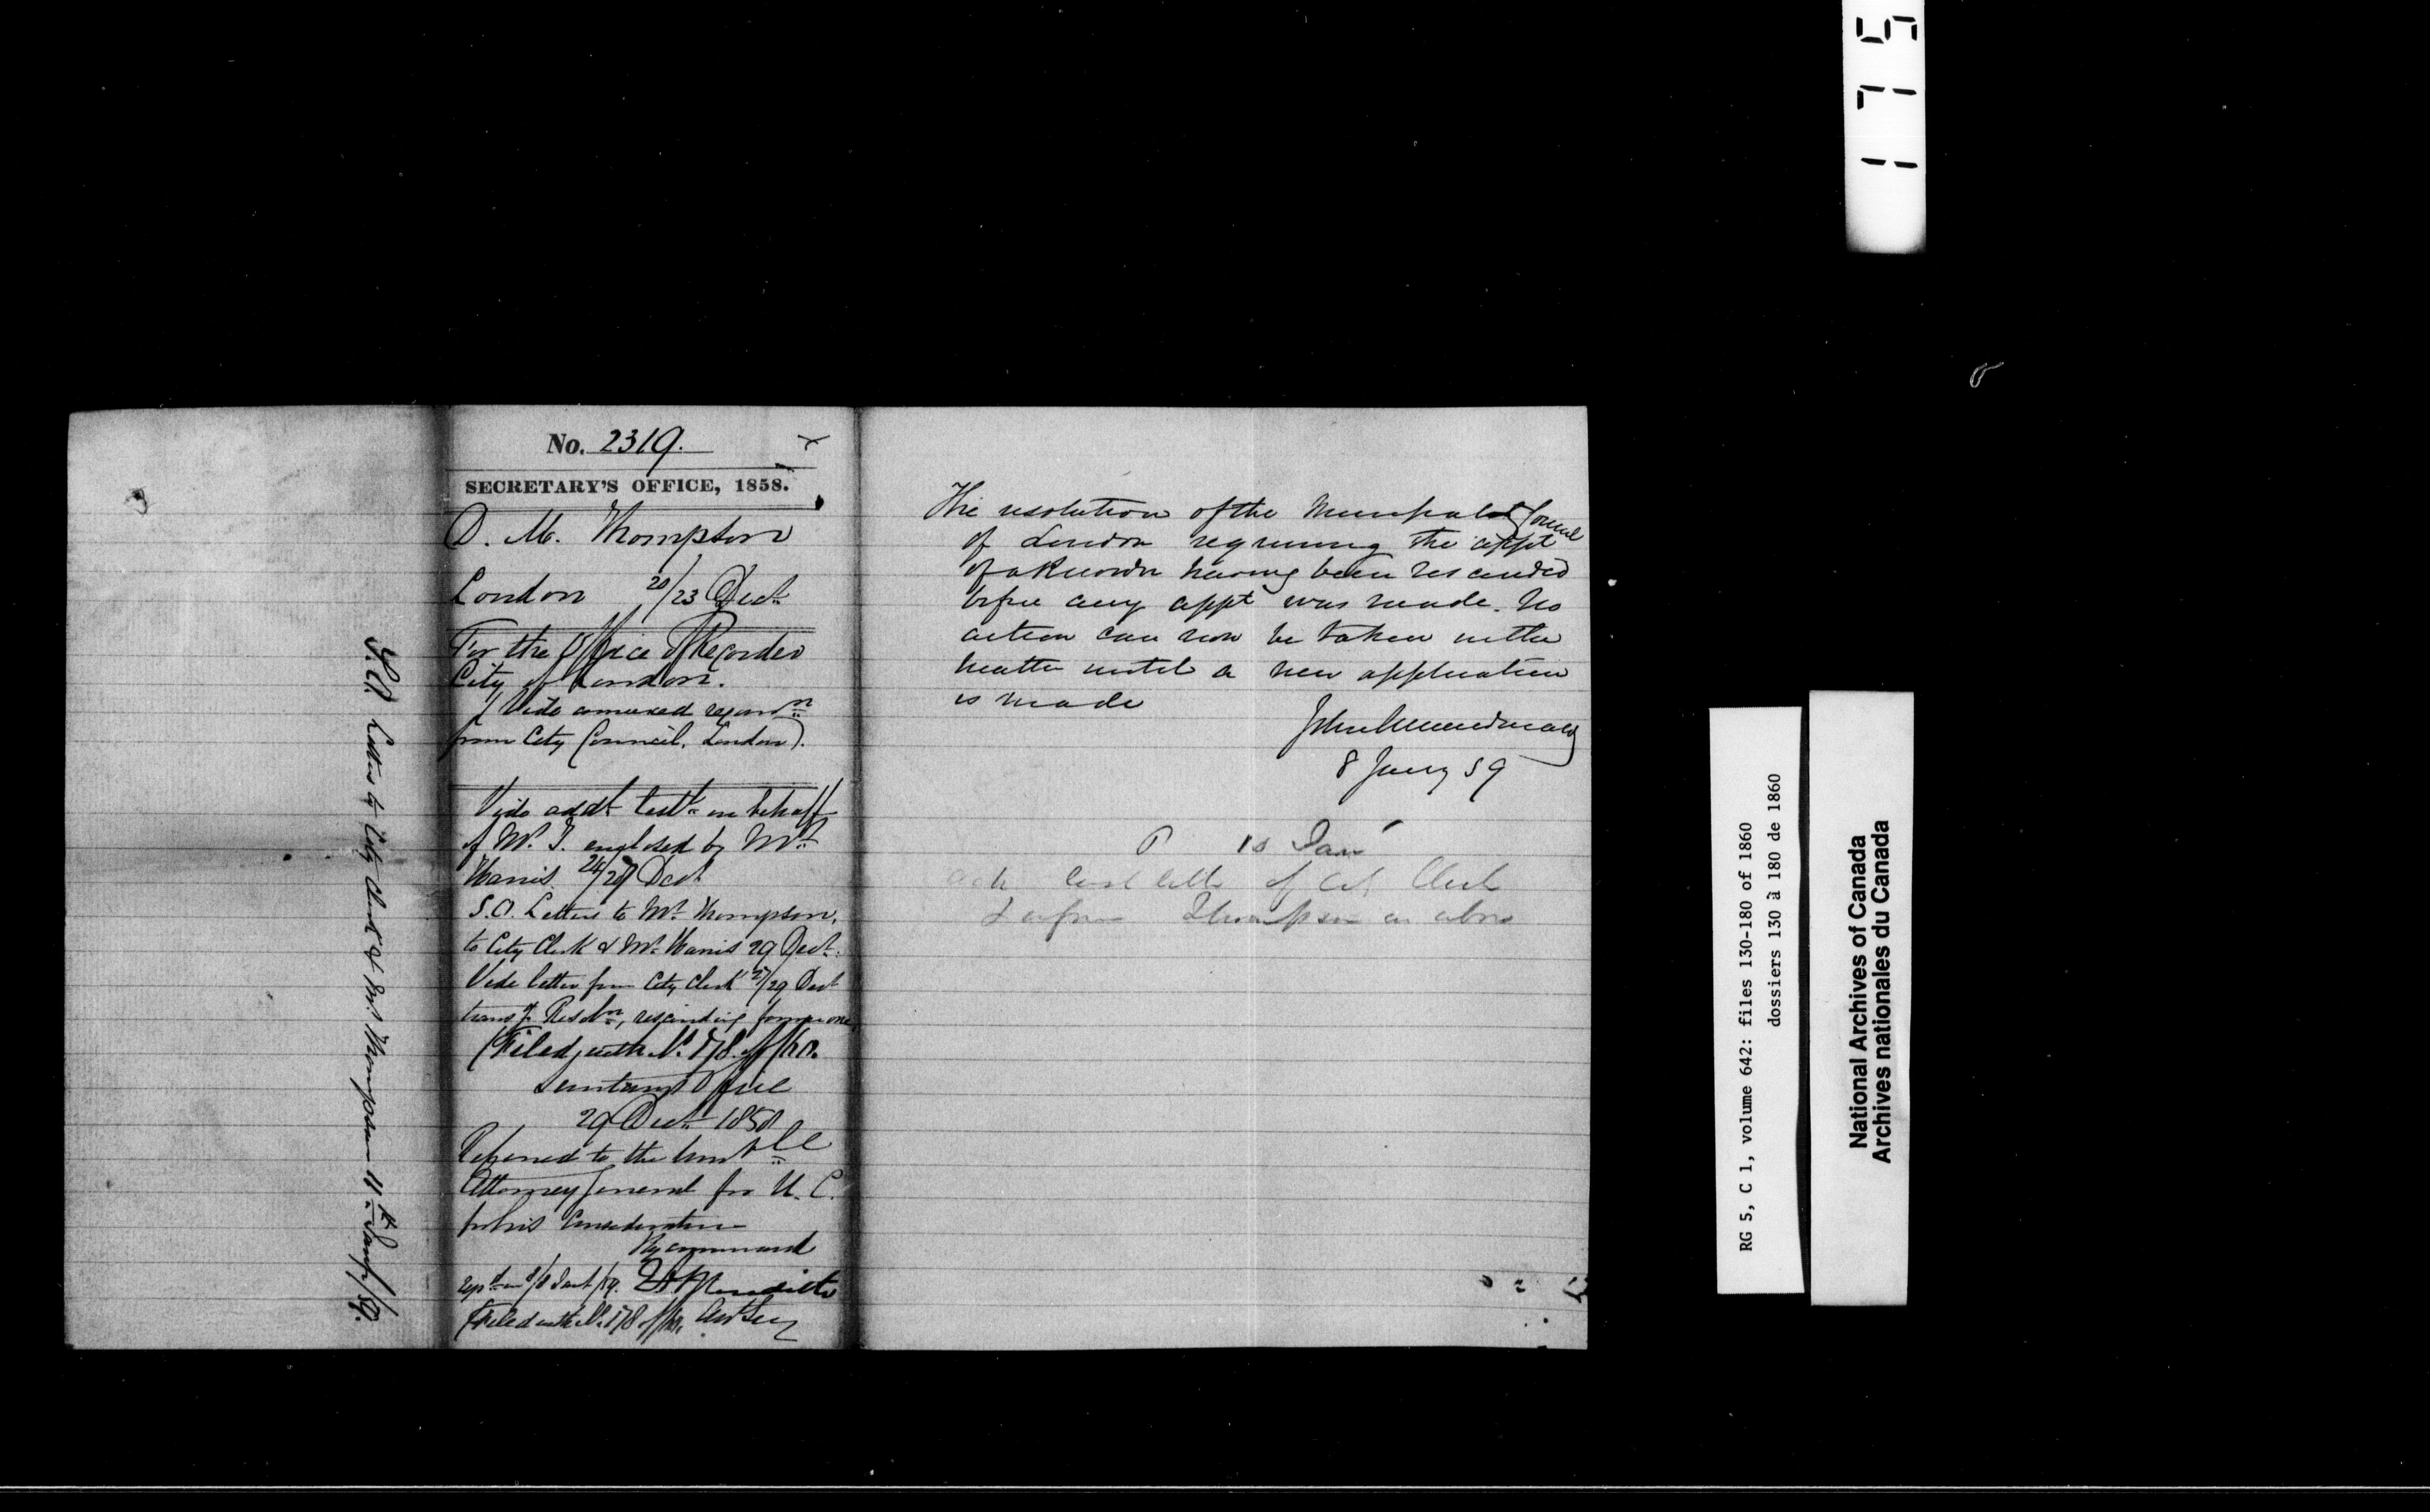 1175
No. 2319.
SECRETARY'S OFFICE, 1858.
D. M. Thompson
London 20/23 Dect.
For the Office of Recorder
City of London.
(Vide annexed
from City Council, London).
Vide addl. testls. on behalf
of Mr. T. enclosed by Mr.
Harris 24/27 Dect.
S.O. Letters to Mr. Thompson,
to City Clerk & Mr. Harris 29 Dect.
Vide letter from City Clerk 27/29 Dect
transg. Resoln., rescinding former one
(Filed with No. 178 of /60.
Secretarys Office
29 Dect. 1858
Referred to the honble
Attorney General for U. C.
for his Consideration
By command
repd. on 8/8 Jany/59. E A Meredith
(Filed with No. 178 of /60. Asst Secy
S.O. Letters to City Clerk & Mr. Thompson 11th Jany/59.
The resolution of the Municipal Council
of London requiring the appt
of a Recorder having been rescinded
before any appt was made. No
action can now be taken in the
matter until a new application
is made
John A Macdonald
8 Jany 59
10 Jan
ack letter of City Clerk
Inform Thompson as above
RG 5, C 1, volume 642: files 130-180 of 1860
dossiers 130 à 180 de 1860
National Archives of Canada
Archives nationales du Canada